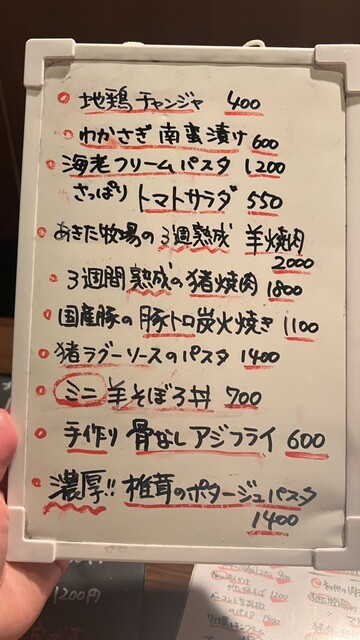 地鶏チャンジャ 400
わかさぎ南蛮漬け 600
海老クリームパスタ 1200
さっぱり トマトサラダ 550
あきた牧場の3週熟成 羊焼肉
2000
3週間熟成の猪焼肉 1800
国産豚の豚トロ炭火焼き 1100
猪ラグーソースのパスタ 1400
ミニ 羊そぼろ丼 700
手作り 骨なしアジフライ 600
濃厚!! 椎茸のポタージュパスタ
1400
1200円